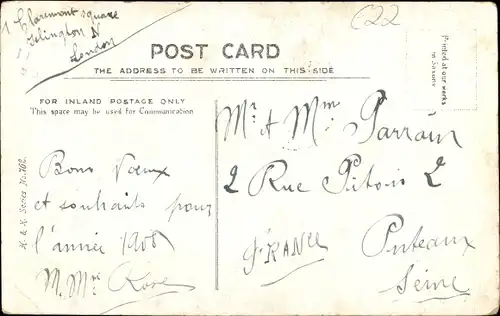 1 Claremont square
Islington N
London
C22
POST CARD
THE ADDRESS TO BE WRITTEN ON THIS SIDE
Printed at our works
in Saxony
FOR INLAND POSTAGE ONLY
This space may be used for Communication
Bons Voeux
et souhaits pour
l'année 1908
M. Mme Rose
Mr & Mme Parrain
2 Rue Pitois 2
Puteaux
FRANCE
Seine
Series No. 702.